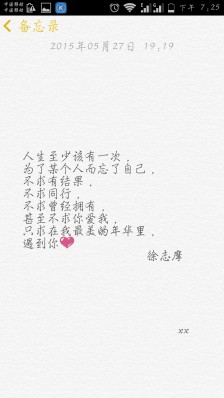 下午 7:25
备忘录
2015年05月27日 19:19
人生至少该有一次，
为了某个人而忘了自己，
不求有结果，
不求同行，
不求曾经拥有，
甚至不求你爱我，
只求在我最美的年华里，
遇到你
徐志摩
xx